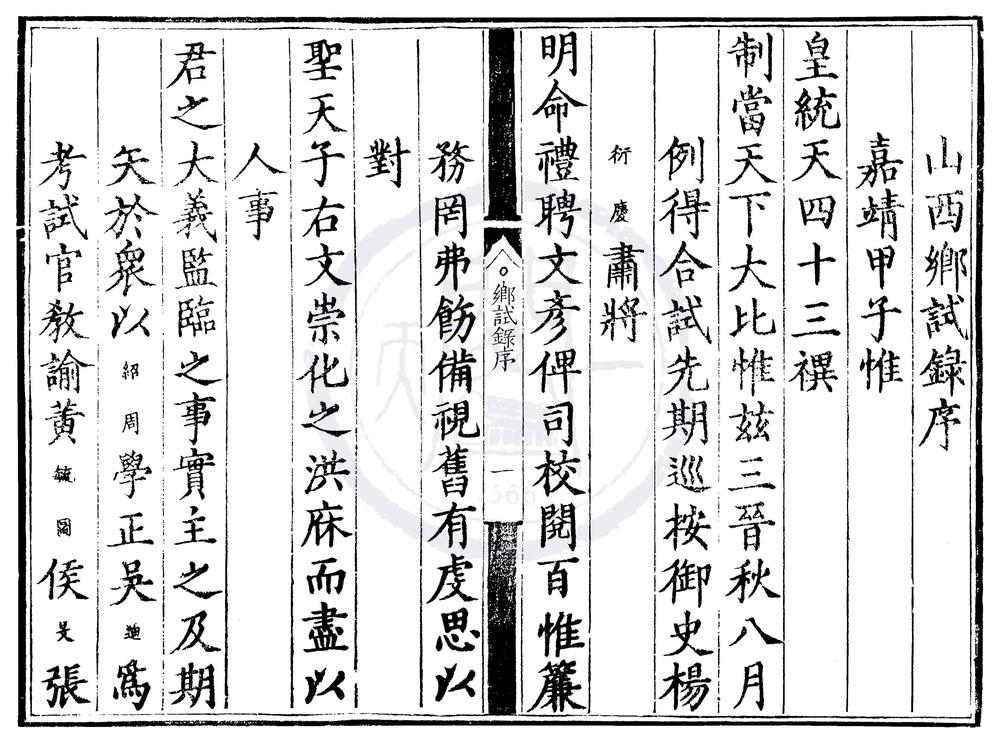 山西鄉試録序
嘉靖甲子惟
皇統天四十三禩
制當天下大比惟兹三晉秋八月
例得合試先期巡按御史楊
衍慶肅將
明命禮聘文彦俾司校閱百惟簾
鄉試錄序 一
務罔弗飭備視舊有虔思以
對
聖天子右文崇化之洪庥而盡以
人事
君之大義監臨之事實主之及期
矢於衆以紹周學正吳迪為
考試官教諭黄毓圖侯旻張